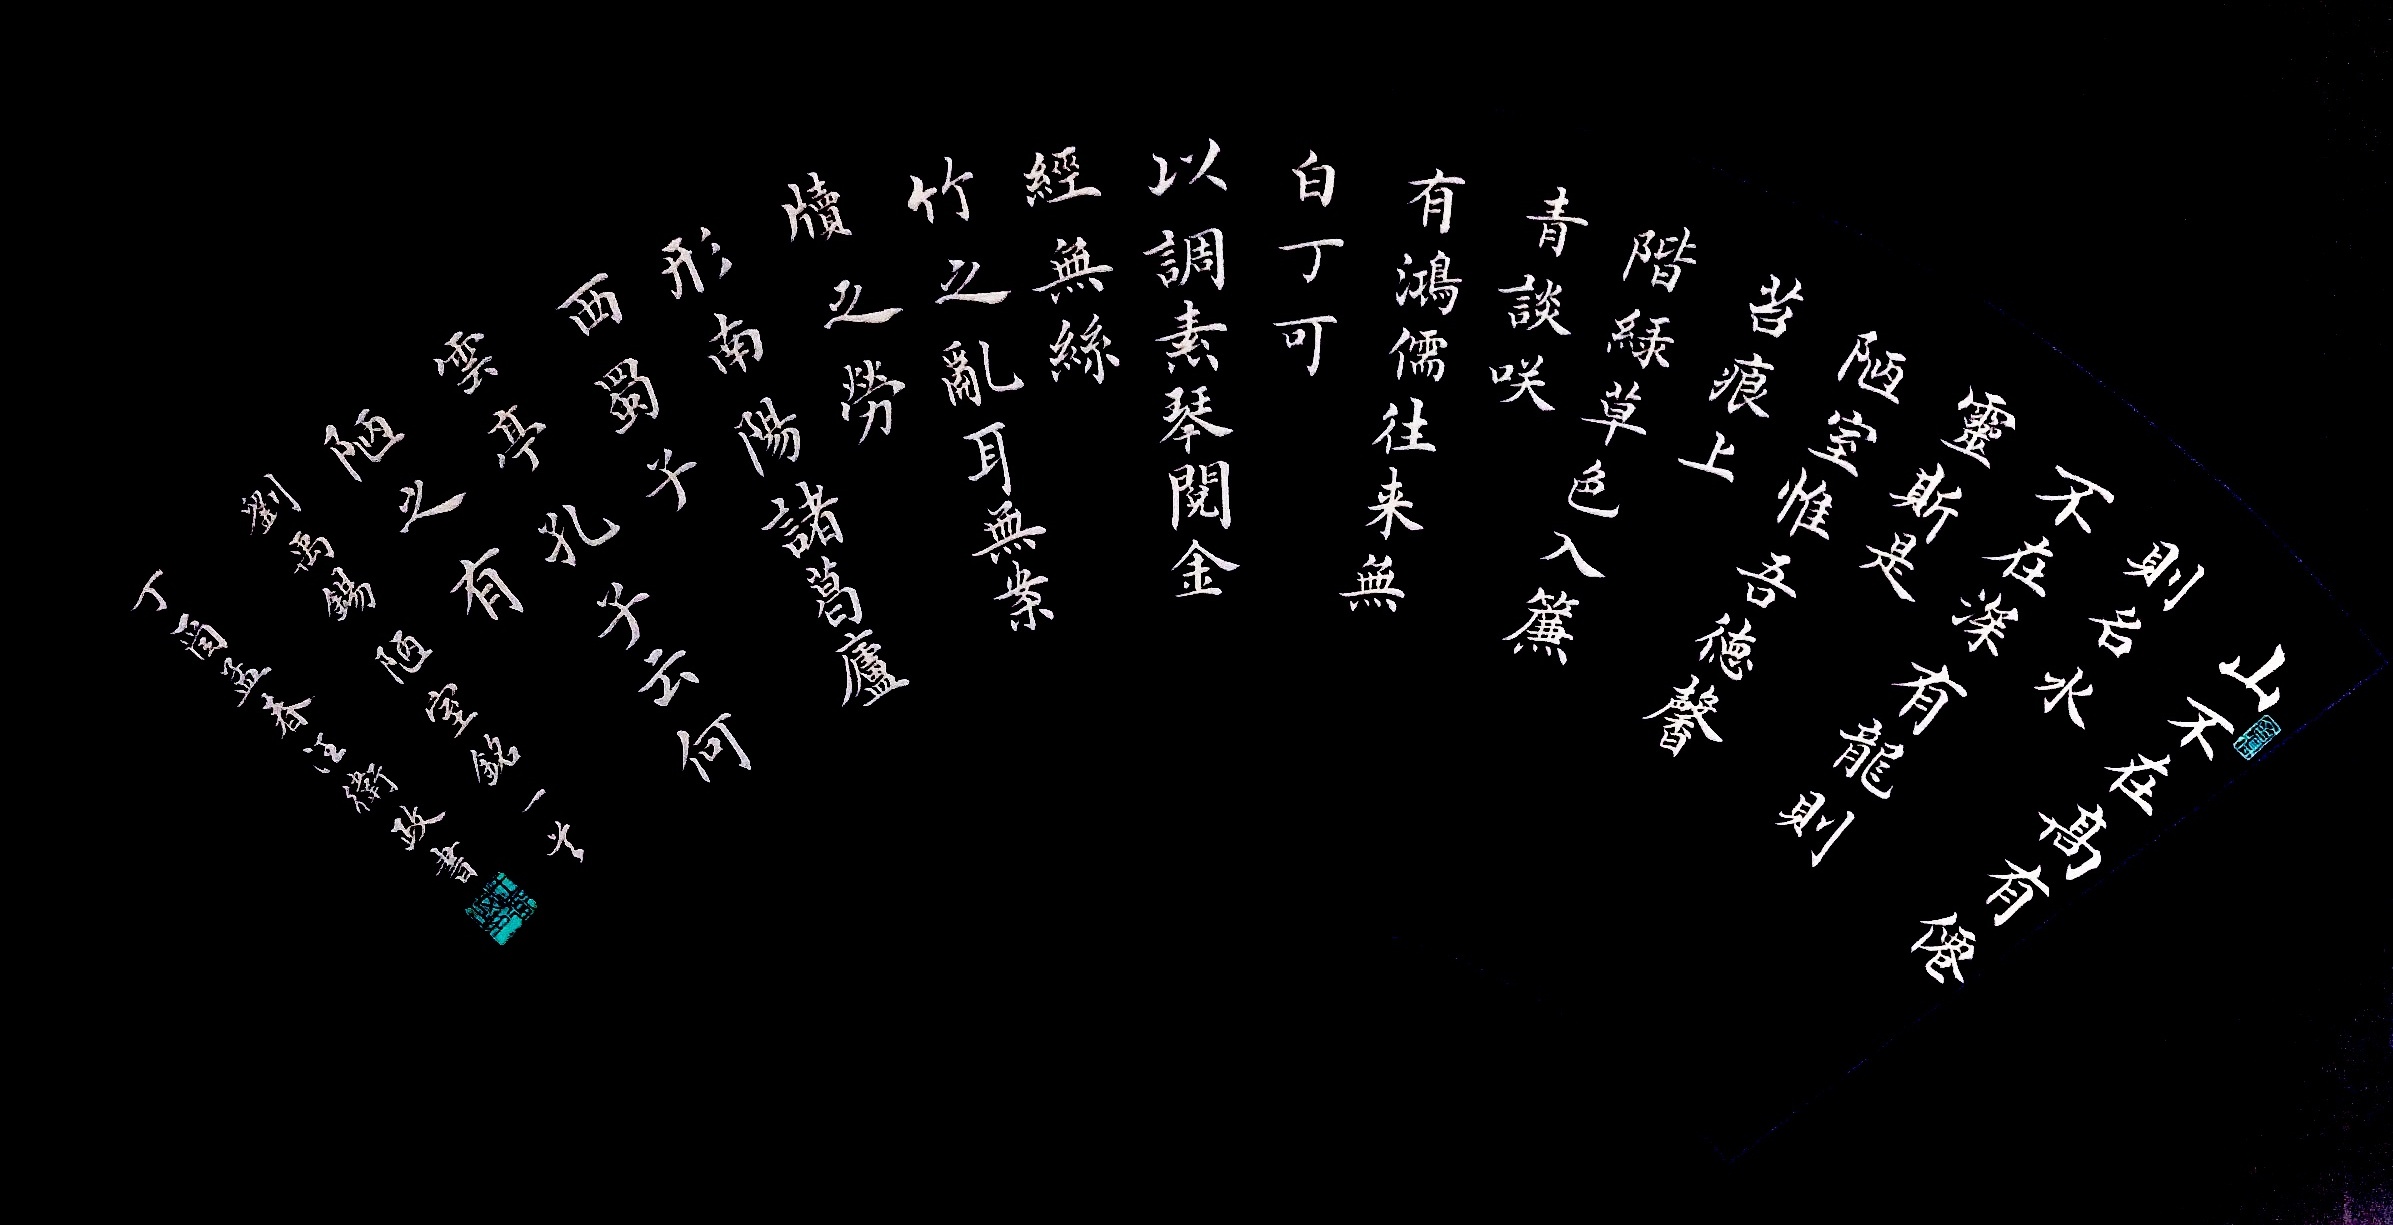 山不在高有僊
則名水
不在深有龍則
靈斯是
陋室惟吾德馨
苔痕上
階緑草色入簾
青談咲
有鴻儒往来無
白丁可
以調素琴閲金
經無絲
竹之亂耳無案
牘之勞
形南陽諸葛廬
西蜀子
雲亭孔子云何
陋之有
劉禹錫陋室銘一首
丁酉孟春汪衛政書